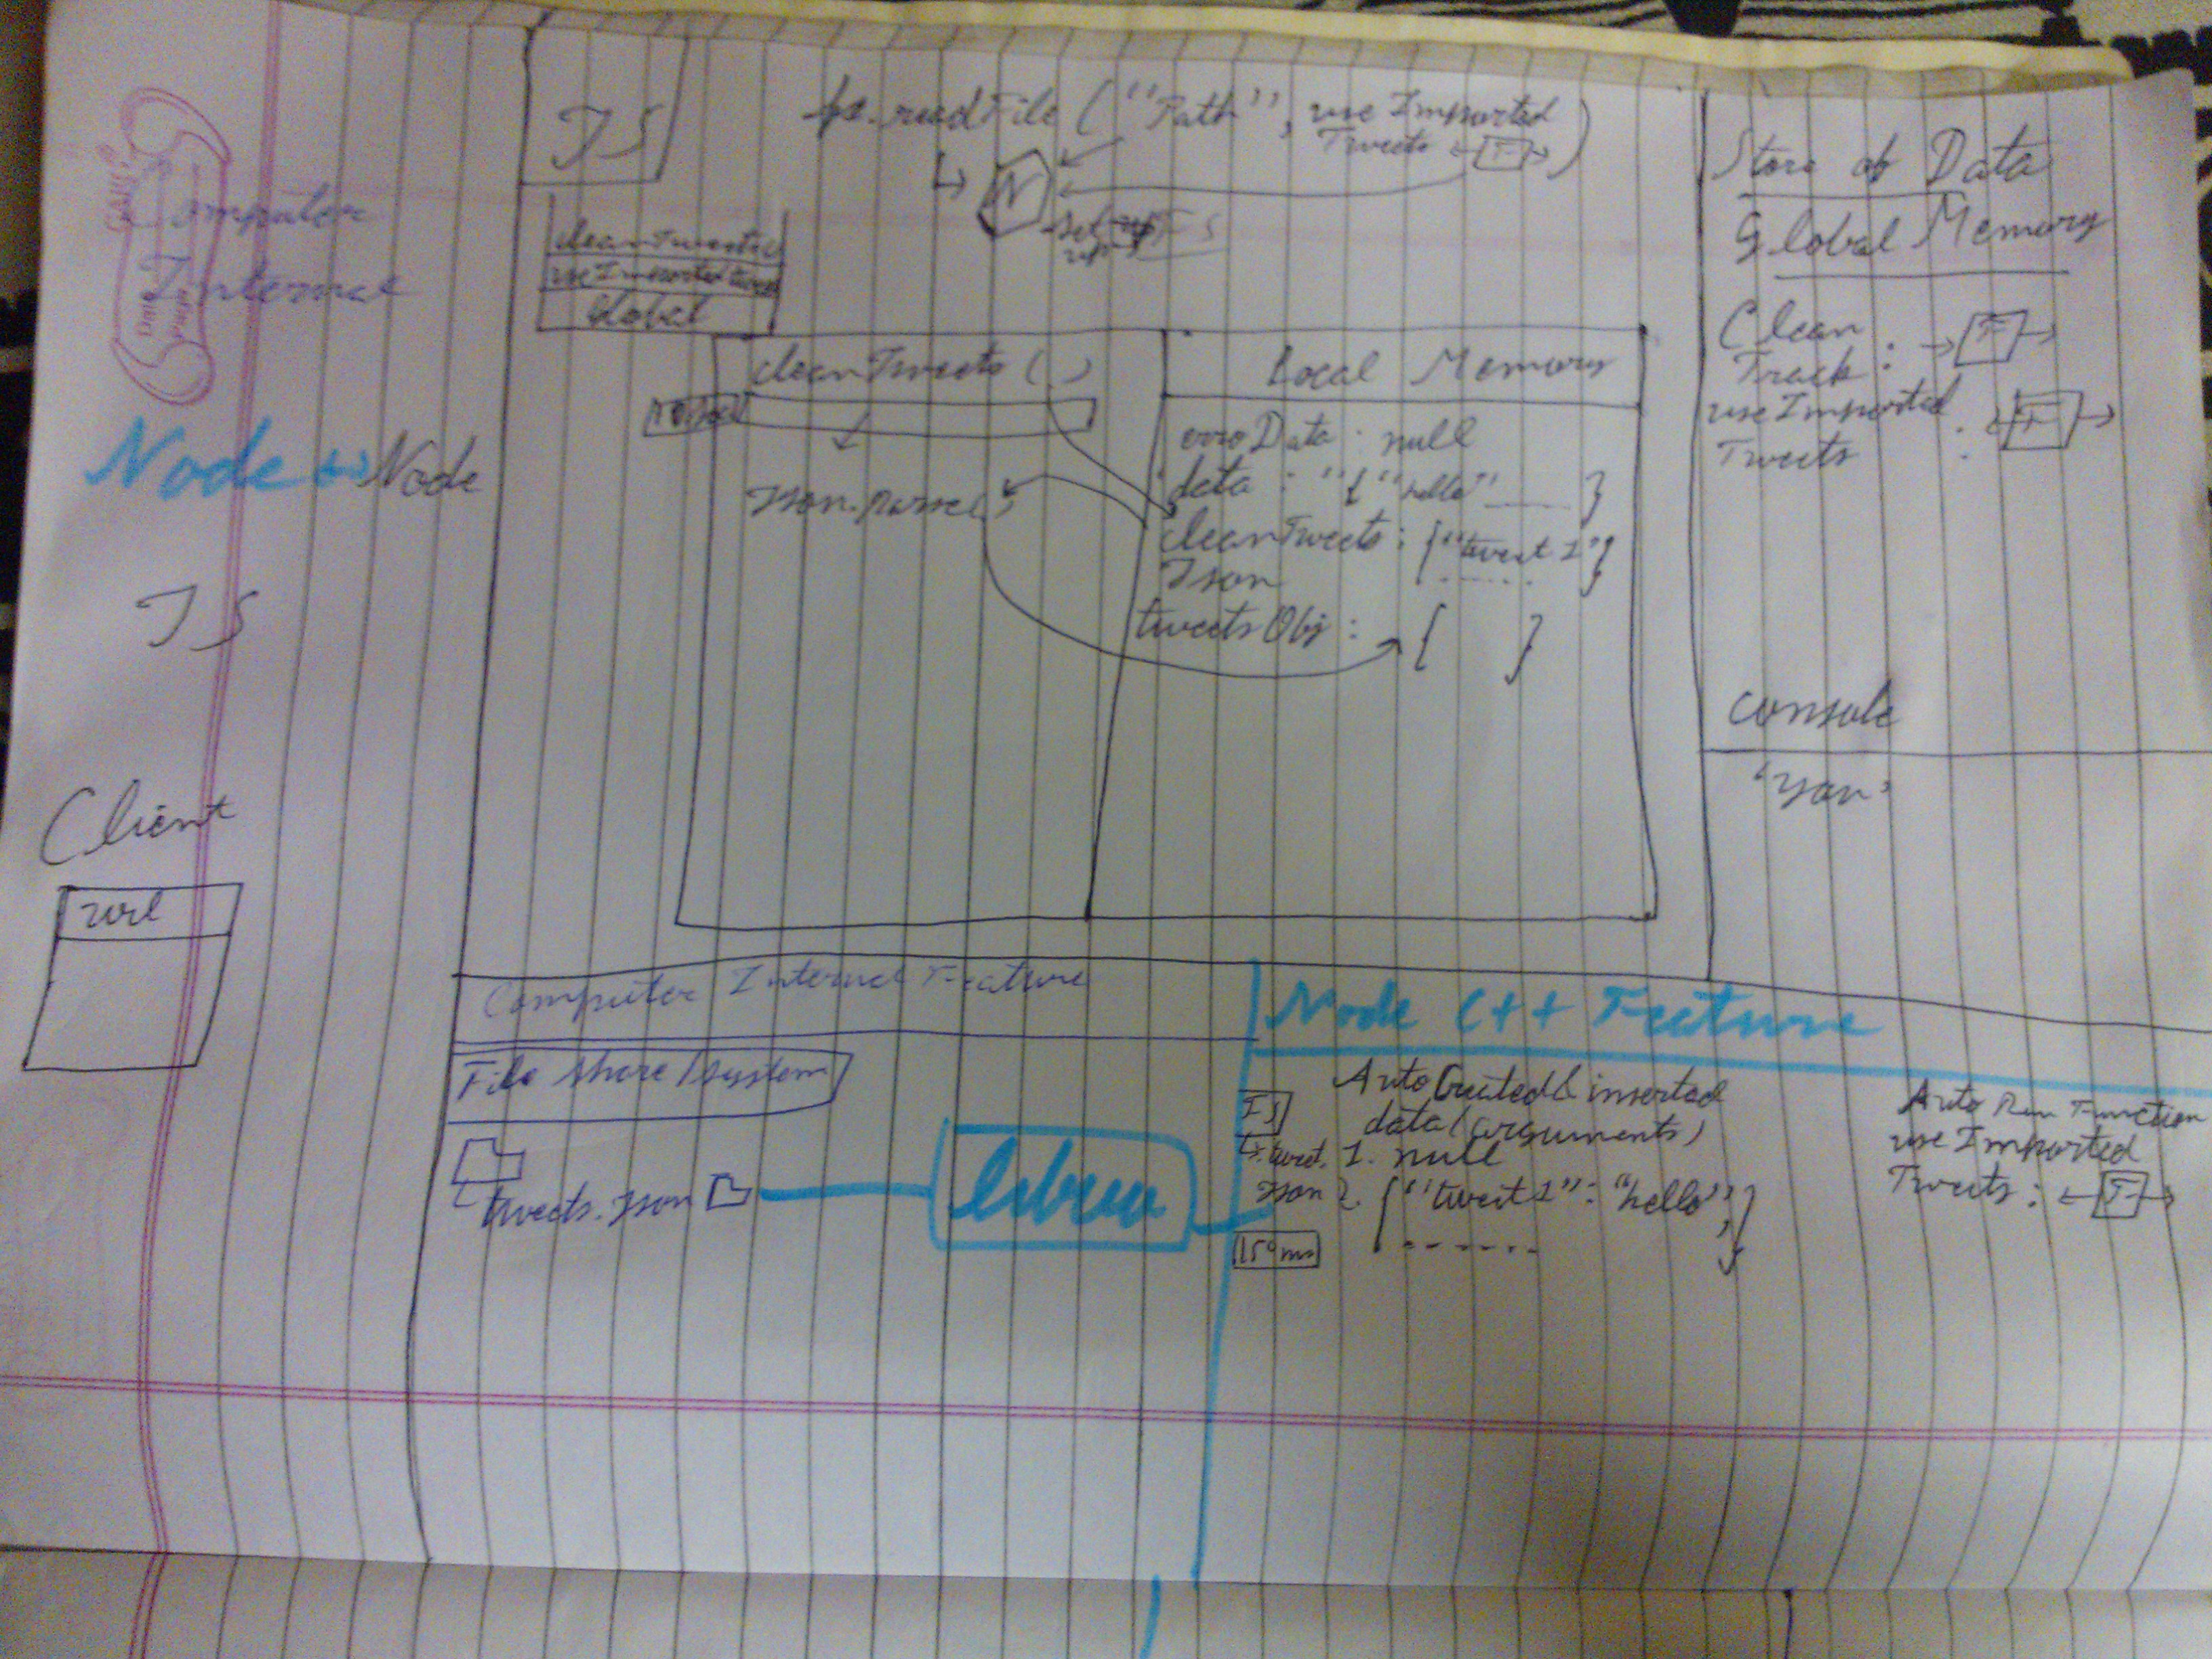 Computer
Internal
Node ↔ Node
JS
Client
url
JS
fs.readFile ("Path", use Imported
Tweets F )
N
set up FS
cleanTweets
use Imported tweets
Global
cleanTweets ( )
Json.parse
Local Memory
erroData : null
data : "{ "hello" }
cleanTweets : {"tweet 1"}
Json
tweets Obj : { }
Store of Data
Global Memory
Clean
Track : F
use Imported
Tweets : F
console
Computer Internal Feature
File share/system
tweets.json
libuv
Node C++ Feature
FS
Auto Created & inserted
data (arguments)
1. null
Json 2. {"tweet 1" : "hello", }
150 ms
Auto Run Function
use Imported
Tweets : F